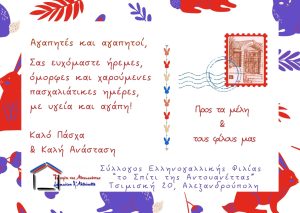 Αγαπητές και αγαπητοί,
Σας ευχόμαστε ήρεμες,
όμορφες και χαρούμενες
πασχαλιάτικες ημέρες,
με υγεία και αγάπη!
Καλό Πάσχα
& Καλή Ανάσταση
Προς τα μέλη
&
τους φίλους μας
Σύλλογος Ελληνογαλλικής Φιλίας
"το Σπίτι της Αντουανέττας"
Τσιμισκή 20, Αλεξανδρούπολη